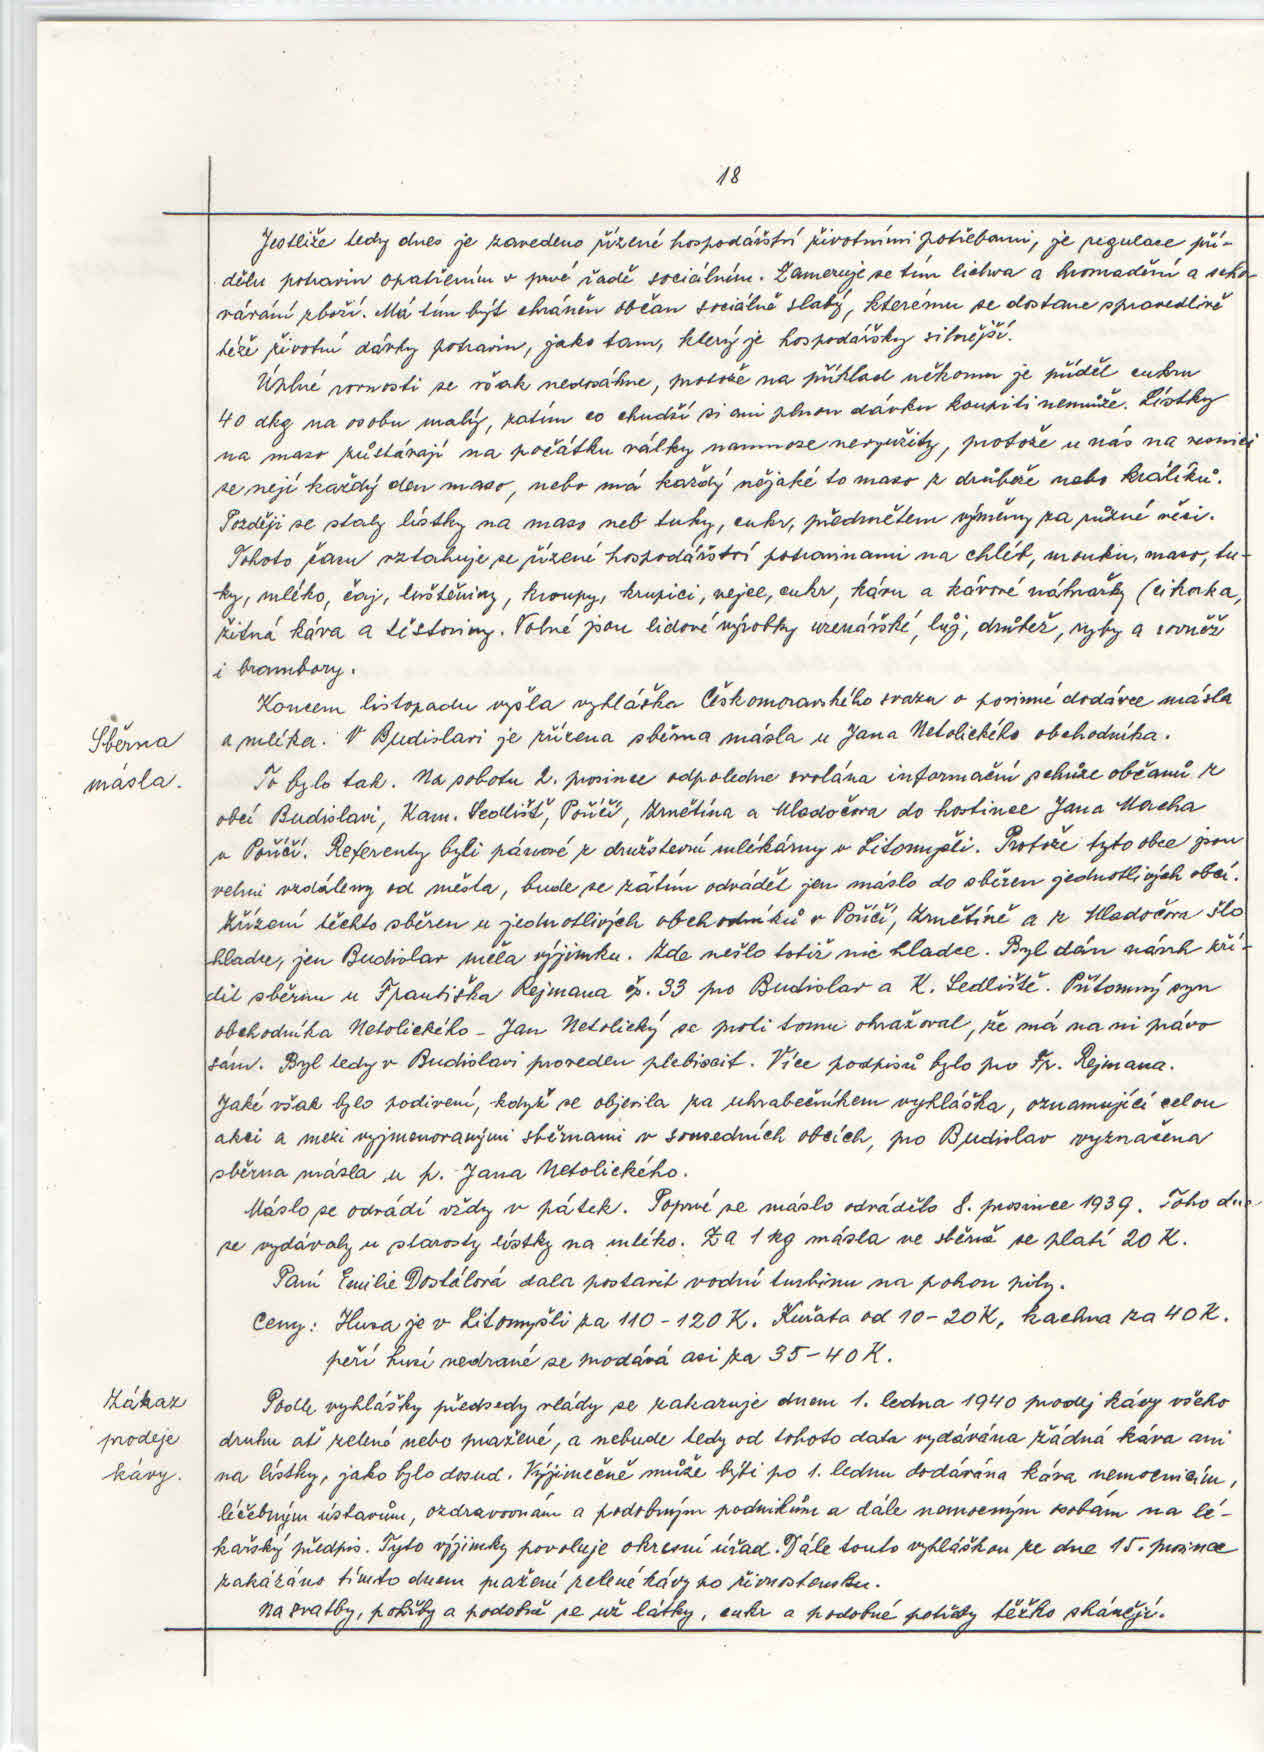 18
Jestliže tedy dnes je zavedeno řízené hospodářství životními potřebami, je regulace pří-
dělu potravin opatřením v prvé řadě sociálním. Zamezuje se tím lichva a hromadění a scho-
vávání zboží. Má tím být chráněn občan sociálně slabý, kterému se dostane spravedlivě
téže životní dávky potravin, jako tam, který je hospodářsky silnější.
Úplné rovnosti se však nedosáhne, protože na příklad někomu je příděl cukru
40 dkg na osobu malý, zatím co chudší si ani plnou dávku koupiti nemůže. Lístky
na maso zůstávají na počátku války namnoze nevyužity, protože u nás na vesnici
se nejí každý den maso, nebo má každý nějaké to maso z drůbeže nebo králíků.
Později se staly lístky na maso neb tuky, cukr, předmětem výměny za různé věci.
Tohoto času vztahuje se řízené hospodářství potravinami na chléb, mouku, maso, tu-
ky, mléko, čaj, luštěniny, kroupy, krupici, vejce, cukr, kávu a kávové náhražky (cikorka,
žitná káva a těstoviny. Volné jsou lidové výrobky uzenářské, lůj, drůbež, ryby a rovněž
i brambory.
Koncem listopadu vyšla vyhláška Českomoravského svazu o povinné dodávce másla
Sběrna
a mléka. V Budislavi je zřízena sběrna másla u Jana Netolického obchodníka.
másla.
To bylo tak. Na sobotu 2. prosince odpoledne svolána informační schůze občanů z
obcí Budislavi, Kam. Sedlišť, Poříčí, Zrnětína a Mladočova do hostince Jana Macha
v Poříčí. Referenty byli pánové z družstevní mlékárny v Litomyšli. Protože tyto obce jsou
velmi vzdáleny od města, bude se zatím odvádět jen máslo do sběren jednotlivých obcí.
Zřízení těchto sběren u jednotlivých obchodníků v Poříčí, Zrnětíně a z Mladočova šlo
hladce, jen Budislav měla výjimku. Zde nešlo totiž nic hladce. Byl dán návrh zří-
dit sběrnu u Františka Rejmana čp. 33 pro Budislav a K. Sedliště. Přítomný syn
obchodníka Netolického - Jan Netolický se proti tomu ohražoval, že má na ni právo
sám. Byl tedy v Budislavi proveden plebiscit. Více podpisů bylo pro Fr. Rejmana.
Jaké však bylo podivení, když se objevila za uhrabečníkem vyhláška, oznamující celou
akci a mezi vyjmenovanými sběrnami v sousedních obcích, pro Budislav vyznačena
sběrna másla u p. Jana Netolického.
Máslo se odvádí vždy v pátek. Poprvé se máslo odvádělo 8. prosince 1939. Toho dne
se vydávaly u starosty lístky na mléko. Za 1 kg másla ve sběrně se platí 20 K.
Paní Emilie Dostálová dala postavit vodní turbinu na pohon pily.
Ceny: Husa je v Litomyšli za 110 - 120 K. Kuřata od 10 - 20 K, kachna za 40 K.
peří husí nedrané se prodává asi za 35 - 40 K.
Zákaz
prodeje
kávy.
Podle vyhlášky předsedy vlády se zakazuje dnem 1. ledna 1940 prodej kávy všeho
druhu ať zelené nebo pražené, a nebude tedy od tohoto data vydávána žádná káva ani
na lístky, jako bylo dosud. Výjimečně může býti po 1. lednu dodávána káva nemocnicím,
léčebným ústavům, ozdravovnám a podobným podnikům a dále nemocným osobám na lé-
kařský předpis. Tyto výjimky povoluje okresní úřad. Dále touto vyhláškou ze dne 15. prosince
zakázáno tímto dnem pražení zelené kávy po živnostensku.
Na svatby, pohřby a podobně se už látky, cukr a podobné potřeby těžko shánějí.